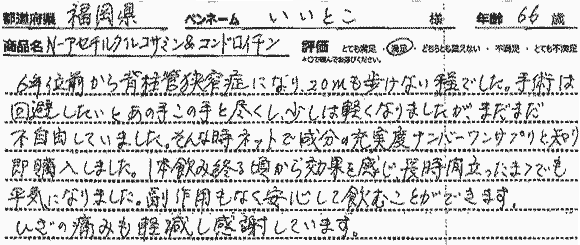 都道府県 福岡県 ペンネーム いいとこ 様 年齢 66 歳
商品名 N-アセチルグルコサミン&コンドロイチン 評価 とても満足・満足・どちらとも言えない・不満足・とても不満足
*○で囲んでお選びください。
6年位前から脊柱管狭窄症になり20mも歩けない程でした。手術は
回避したいとあの手この手と尽くし、少しは軽くなりましたが、まだまだ
不自由していました。そんな時ネットで成分の充実度ナンバーワンサプリと知り
即購入しました。1本飲み終る頃から効果を感じ、長時間立ったまゝでも
平気になりました。副作用もなく安心して飲むことができます。
ひざの痛みも軽減し感謝しています。